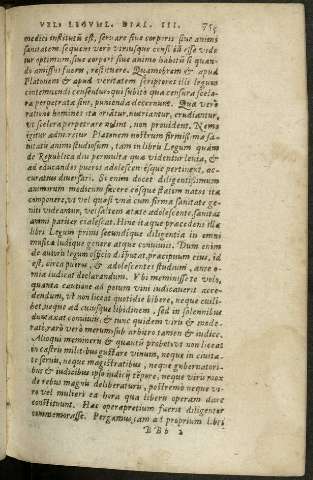 VEL LEGVML. DIAL. III. 755
medici institutũ est, seruare siue corporis siue animi
sanitatem. sequens verò vtriusque
tur optimum, siue corpori siue animo habitũ si quan-
do amissus fuerit, restituere. Quamobrem & apud
Platonem & apud veritatem scriptores illi legum
contemnendi censentur, qui subitò qua censura scele-
ra perpetrata sint, punienda decernunt. Qua verò
ratione homines ita oriãtur, nutriantur, erudiantur,
vt scelera perpetrare nolint, non prouident. Nemo
igitur admiretur Platonem nostrum firmissimæ sa-
nitatis animi studiosum, tam in libris Legum quàm
de Republica diu permulta quæ videntur leuia, &
ad educandos pueros adolescentésque pertinent, ac-
curatius diuersari. Si enim docet diligentissimum
animorum medicum facere eósque statim natos ita
componere, vt vel quasi vnà cum firma sanitate ge-
niti videantur, vel saltem ætate adolescente, sanitas
animi pariter coalescat. Hinc itaque præcedens illa
libri Legum primi secundíque diligentia in omni
musicæ ludíque genere atque conuiuiis. Dum enim
de auiuis legum officio disputat, præcipuum eius, id
est, circa pueros & adolescentes studium, ante o-
mnia iudicat declarandum. Vbi meminisse te velo,
quanta cautione ad potum vini iudicauerit acce-
dendum, vt non liceat quotidie bibere, neque cuili-
bet, neque ad cuiusque libidinem, sed in solennibus
duntaxat conuiuiis, & tunc quidem viris & mode-
rati, rarò verò merum sub arbitro tamen & iudice.
Alioqui memineris & quantis probet vt non liceat
in castris militibus gustare vinum, neque in ciuita-
te seruis, neque magistratibus, neque gubernatori-
bus & iudicibus ipso iudicij tẽpore, neque viris mox
de rebus magnis deliberaturis, postremò neque vi-
ro vel mulieri ea hora qua liberis operam dare
constituunt. Hæc operæpretium fuerit diligenter
commemorasse. Pergamus iam ad proprium libri
BBb 2